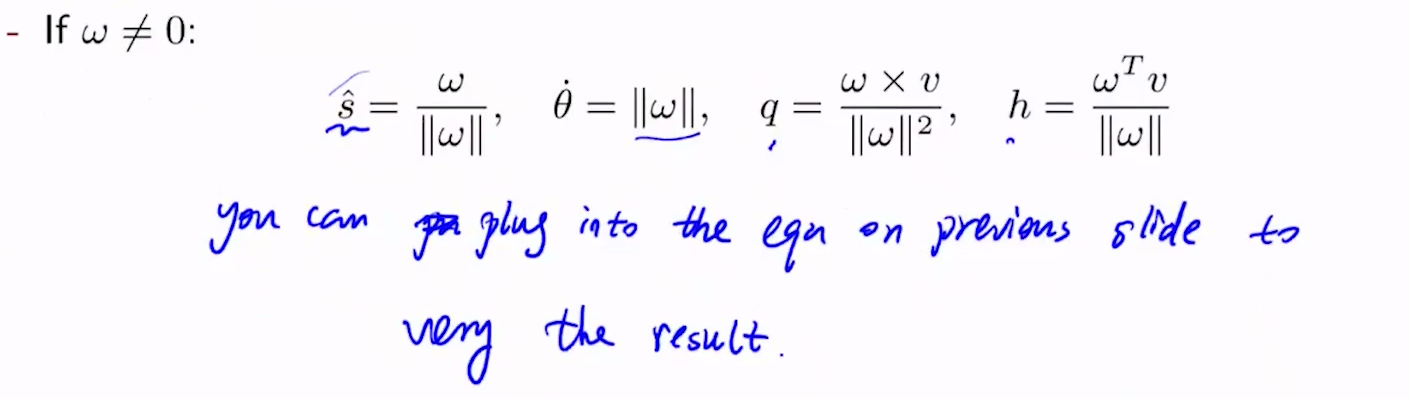 - If ω ≠ 0:
ŝ = ω / ‖ω‖, θ̇ = ‖ω‖, q = (ω × v) / ‖ω‖², h = (ωᵀv) / ‖ω‖
you can plug into the equ on previous slide to
very the result.